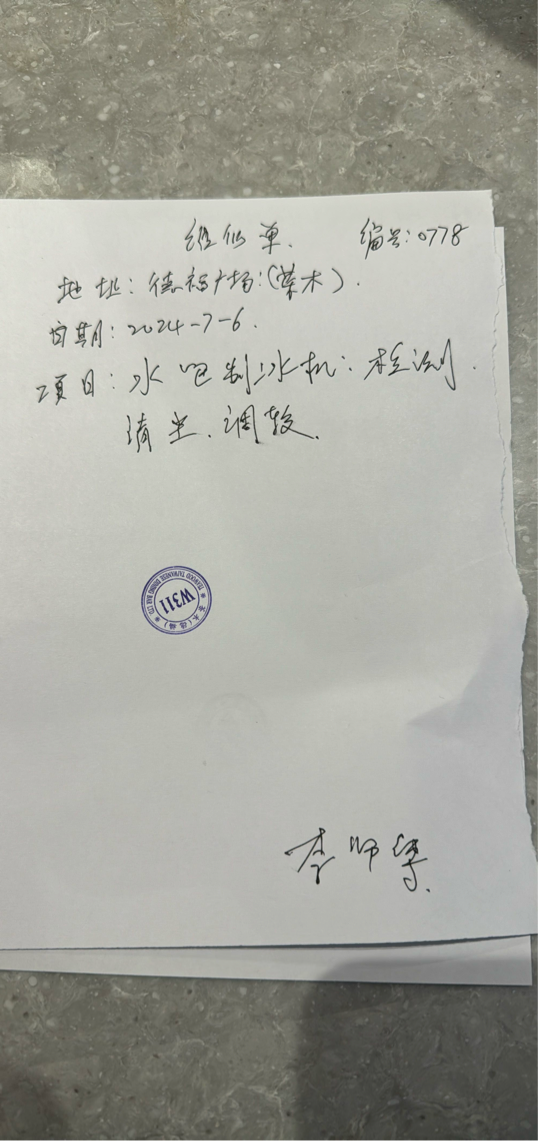 维修单. 编号:0778
地址:德福广场:(茶木).
日期:2024-7-6.
项目:水吧制冰机:检测.
清尘.调较.
W311
李师傅.